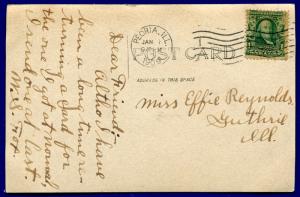 PEORIA, ILL.
JAN
POST CARD
ADDRESS IN THIS SPACE
Miss Effie Reynolds,
Guthrie
Ill.
Dear Friend:-
Altho I have
been a long time re-
turning a card for
the one I got at Normal,
I send one at last.
W. S.